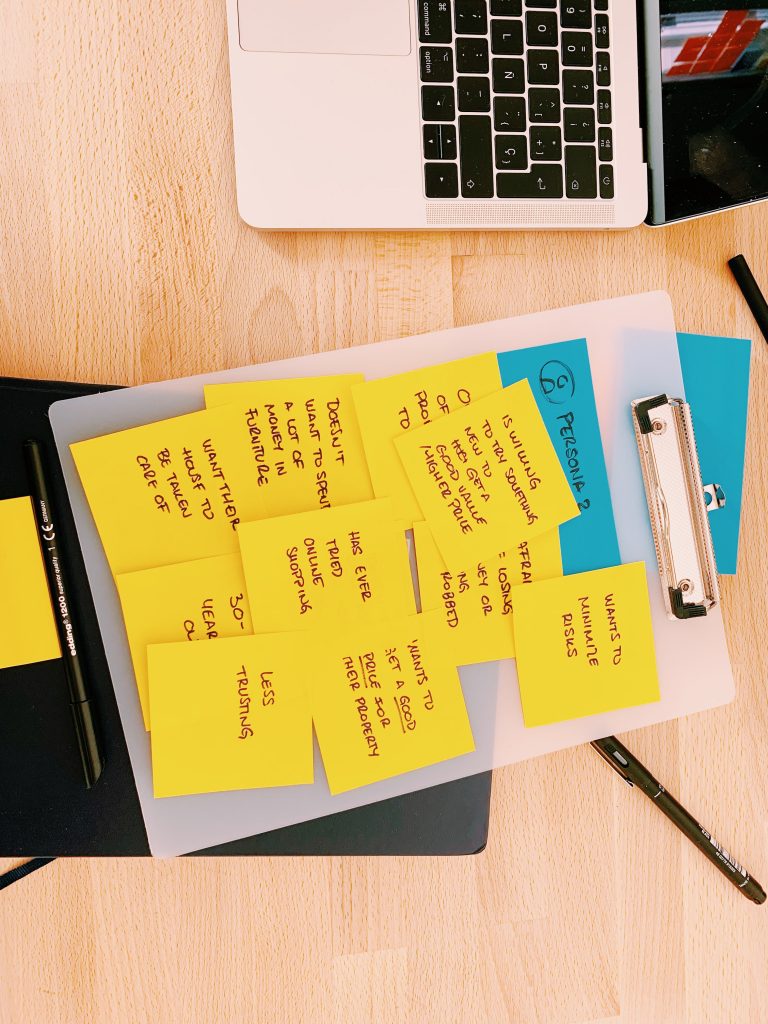 PERSONA 2
IS WILLING
TO TRY SOMETHING
NEW TO
GET A
GOOD VALUE
/HIGHER PRICE
DOESN'T
WANT TO SPEND
A LOT OF
MONEY IN
FURNITURE
WANT THEIR
HOUSE TO
BE TAKEN
CARE OF
HAS EVER
TRIED
ONLINE
SHOPPING
AFRAI
LOSING
NEY OR
NG
ROBBED
WANTS TO
MINIMIZE
RISKS
30-
YEAR
WANTS TO
GET A GOOD
PRICE FOR
THEIR PROPERTY
LESS
TRUSTING
OF
TO
edding 1200 superior quality 1 CE GERMANY
command
option
O
P
L
Ñ
Ç